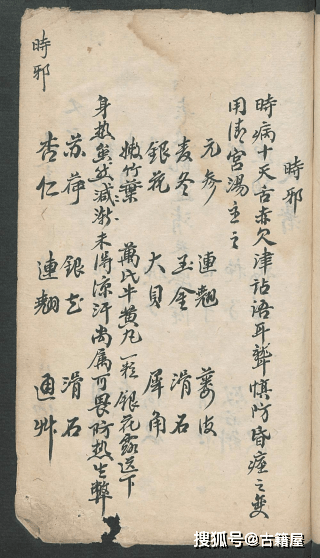 時邪
時病十天舌赤欠津譫語耳聾慎防昏痙之變
用清宮湯主之
元参 連翹 蔞皮
麦冬 玉金 滑石
銀花 大貝 犀角
嫩竹葉 萬氏牛黄丸一粒銀花露送下
身熱雖然減漸未得涼汗尚属可畏防熱生弊
苏荷 銀花 滑石
杏仁 連翹 通艸
時邪
搜狐号@古籍屋